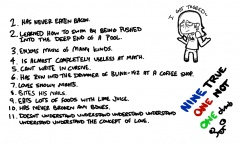 I GOT TAGGED!
1. HAS NEVER EATEN BACON.
2. LEARNED HOW TO SWIM BY BEING PUSHED
INTO THE DEEP END OF A POOL.
3. ENJOYS MUSIC OF MANY KINDS.
4. IS ALMOST COMPLETELY USELESS AT MATH.
5. CANT WRITE IN CURSIVE.
6. HAS RUN INTO THE DRUMMER OF BLINK-182 AT A COFFEE SHOP.
7. LOVES SHONEN MANGA.
8. BITES HIS NAILS.
9. EATS LOTS OF FOODS WITH LIME JUICE.
10. HAS NEVER BROKEN ANY BONES.
11. DOESN'T UNDERSTAND UNDERSTAND UNDERSTAND
UNDERSTAND UNDERSTAND THE CONCEPT OF LOVE.
NINE TRUE
ONE NOT
ONE